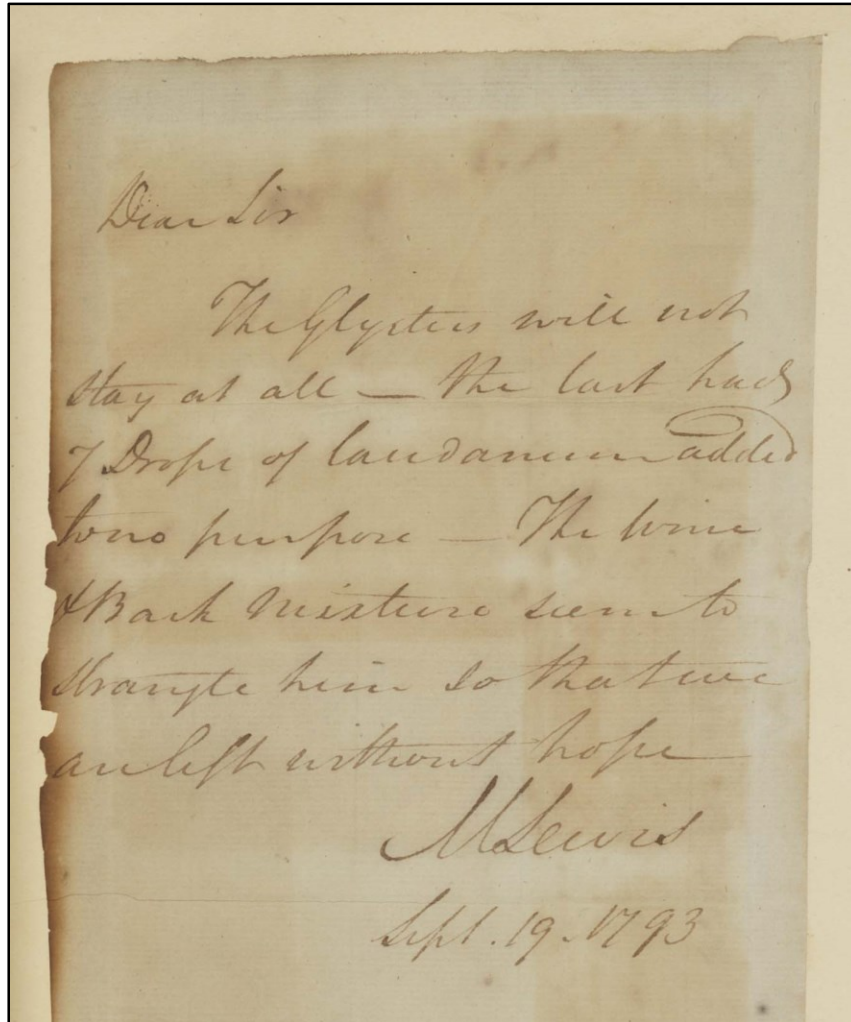 Dear Sir
The Glysters will not
stay at all — the last had
7 Drops of laudanum added
to no purpose — The Wine
& Bark Mixture seem to
strangle him so that we
are left without hope
M Lewis
Sept. 19. 1793